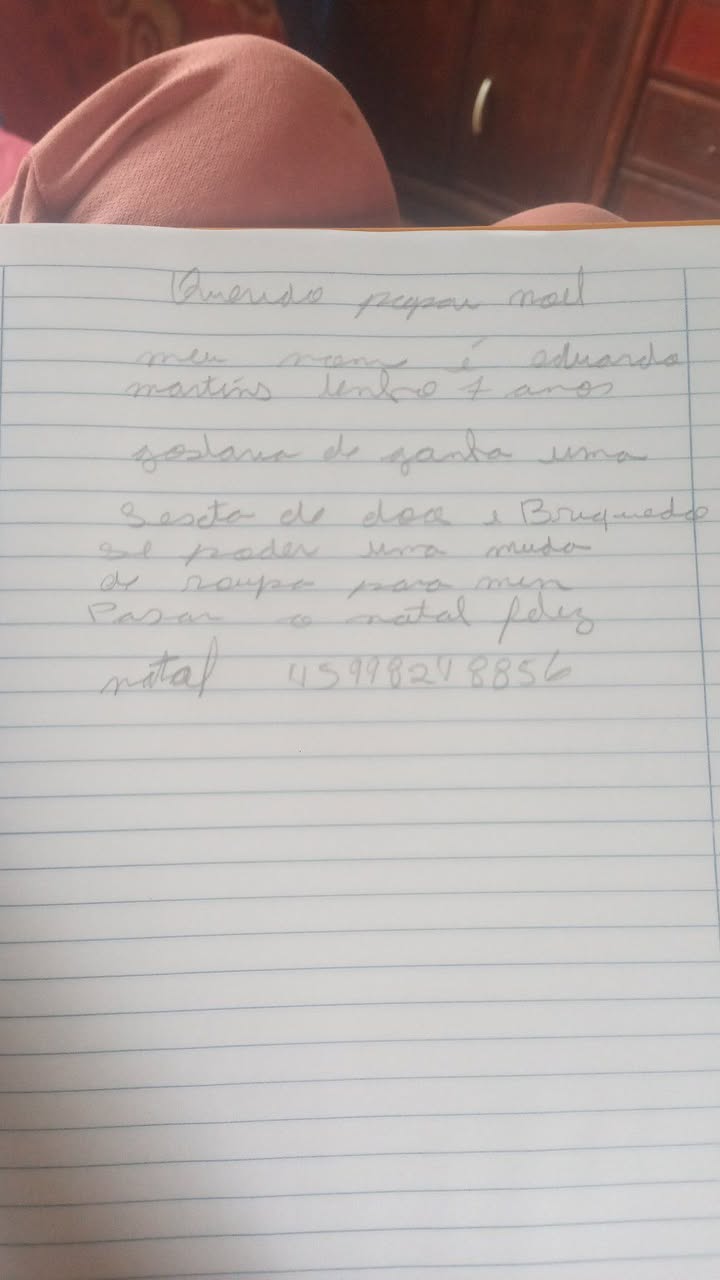 Querido papai noel
meu nome é eduardo
martins tenho 7 anos
gostaria de ganha uma
Sescta de doce e Bruquedo
se poder uma muda
de roupa para mim
Pasar o natal feliz
natal 45998248856